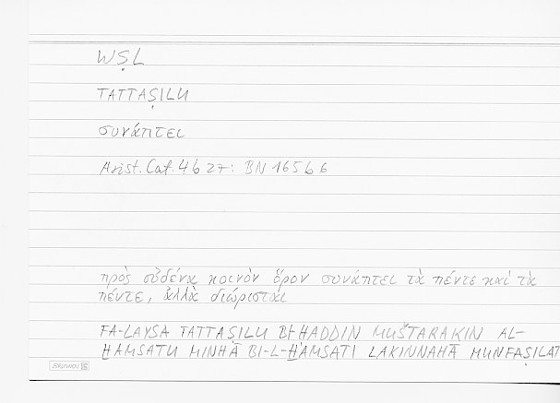 WṢL
TATTAṢILU
συνάπτει
Arist. Cat. 4b27: BN 165b6
πρὸς οὐδένα κοινὸν ὅρον συνάπτει τὰ πέντε καὶ τὰ
πέντε, ἀλλὰ διώρισται
FA-LAYSA TATTAṢILU BI-ḤADDIN MUŠTARAKIN AL-
ḪAMSATU MINHĀ BI-L-ḪAMSATI LAKINNAHĀ MUNFAṢILAT